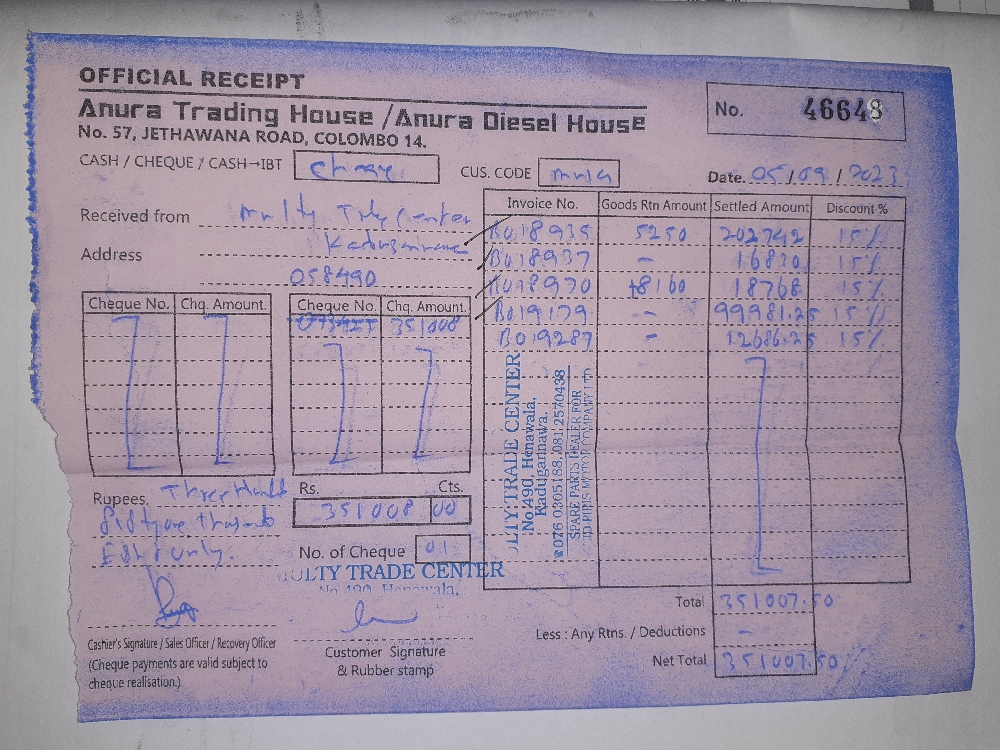 OFFICIAL RECEIPT
Anura Trading House / Anura Diesel House
No. 57, JETHAWANA ROAD, COLOMBO 14.
No. 46648
CASH / CHEQUE / CASH→IBT
CUS. CODE
Date. 05/09/2023
Received from Multy Trade Center
Address
058490
Invoice No. Goods Rtn Amount Settled Amount Discount %
B018935 5250 202742 15%
B018937 - 16830 15%
B018970 +8160 18768 15%
B019179 -- 99981.25 15%
B019287 - 12686.25 15%
Cheque No. Chq. Amount. Cheque No. Chq. Amount.
351008
Rupees.
only.
Rs. Cts.
351008 00
No. of Cheque 01
MULTY TRADE CENTER
No 490, Henawala,
MULTY TRADE CENTER
No.490, Henawala,
Kadugannawa.
076 0305188, 081 2570438
SPARE PARTS DEALER FOR
Total 351007.50
Less : Any Rtns. / Deductions -
Net Total 351007.50
Cashier's Signature / Sales Officer / Recovery Officer
(Cheque payments are valid subject to
cheque realisation.)
Customer Signature
& Rubber stamp